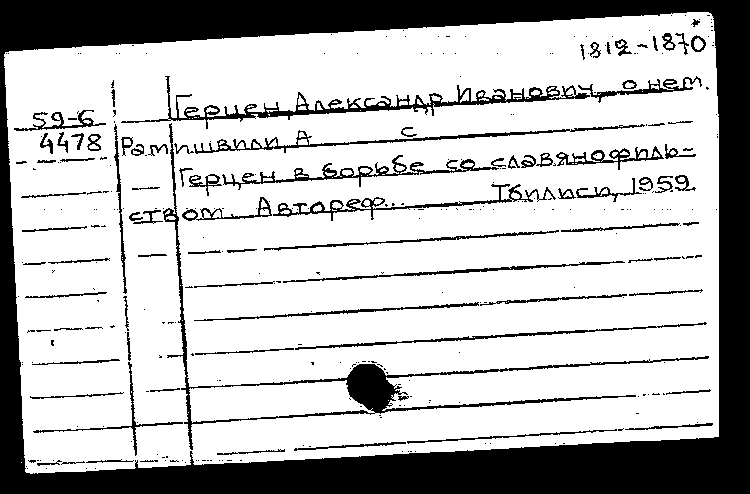 1812-1870
Герцен, Александр Иванович, о нем.
59-6
4478 Рамишвили, А С
Герцен в борьбе со славянофиль-
ством. Автореф... Тбилиси, 1959.